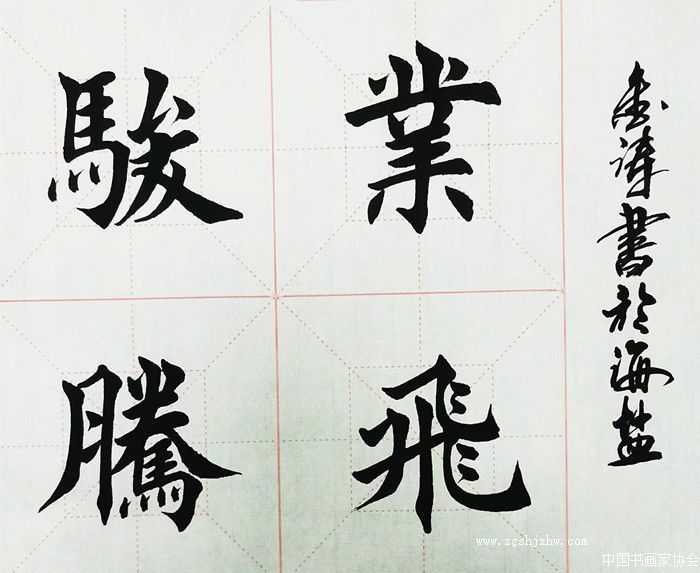 駿業
騰飛
書於海盐
www.zgshjxhw.com
中国书画家协会